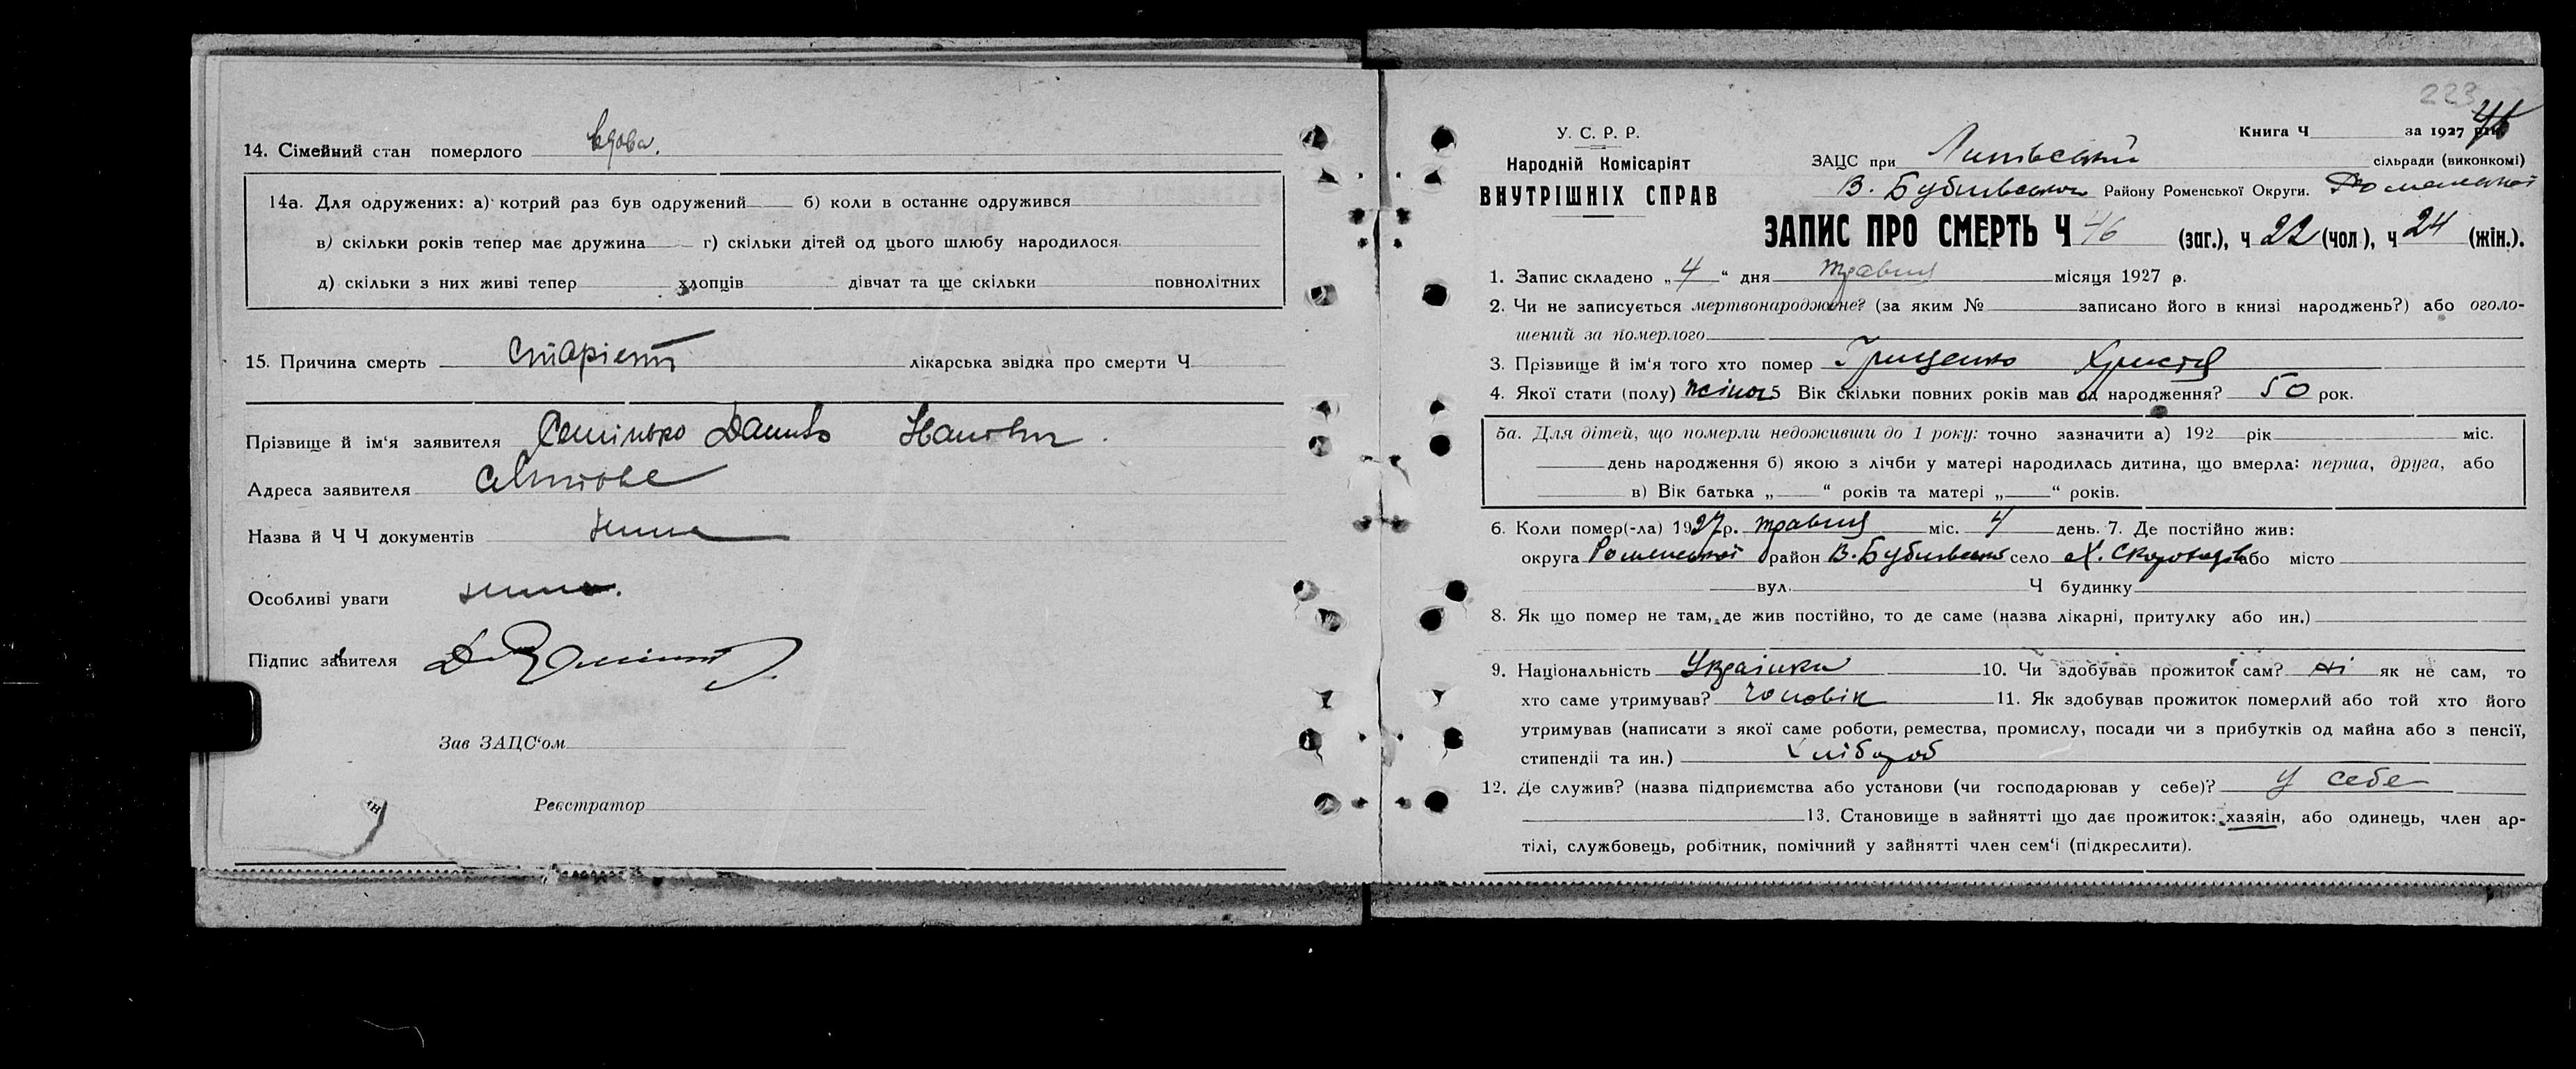 14. Сімейний стан померлого вдова.
14а. Для одружених: а) котрий раз був одружений б) коли в останнє одружився
в) скільки років тепер має дружина г) скільки дітей од цього шлюбу народилося
д) скільки з них живі тепер хлопців дівчат та ще скільки повнолітних
15. Причина смерть старість лікарська звідка про смерти Ч
Прізвище й ім'я заявителя Данило
Адреса заявителя
Назва й Ч Ч документів нима
Особливі уваги нима.
Підпис заявителя
Зав ЗАЦС'ом
Реєстратор
223
46
У. С. Р. Р.
Народній Комісаріят
ВНУТРІШНІХ СПРАВ
Книга Ч за 1927 рік
ЗАЦС при сільради (виконкомі)
В. Бубнівського Району Роменської Округи. Роменської
ЗАПИС ПРО СМЕРТЬ Ч 46 (заг.), ч 22 (чол), ч 24 (жін.).
1. Запис складено „4“ дня травня місяця 1927 р.
2. Чи не записується мертвонароджене? (за яким № записано його в книзі народжень?) або оголо-
шений за померлого
3. Прізвище й ім'я того хто помер Грищенко Христя
4. Якої стати (полу) жіноч 5 Вік скільки повних років мав од народження? 50 рок.
5а. Для дітей, що померли недоживши до 1 року: точно зазначити а) 192 рік міс.
день народження б) якою з лічби у матері народилась дитина, що вмерла: перша, друга, або
в) Вік батька „ “ років та матері „ “ років.
6. Коли помер(-ла) 1927р. травня міс. 4 день. 7. Де постійно жив:
округа Роменської район В. Бубнівськ село Х. або місто
вул. Ч будинку
8. Як що помер не там, де жив постійно, то де саме (назва лікарні, притулку або ин.)
9. Національність Українка 10. Чи здобував прожиток сам? ні як не сам, то
хто саме утримував? чоловік 11. Як здобував прожиток померлий або той хто його
утримував (написати з якої саме роботи, ремества, промислу, посади чи з прибутків од майна або з пенсії,
стипендії та ин.) хлібороб
12. Де служив? (назва підприємства або установи (чи господарював у себе)? у себе
13. Становище в зайнятті що дає прожиток: хазяїн, або одинець, член ар-
тілі, службовець, робітник, помічний у зайнятті член сем'ї (підкреслити).